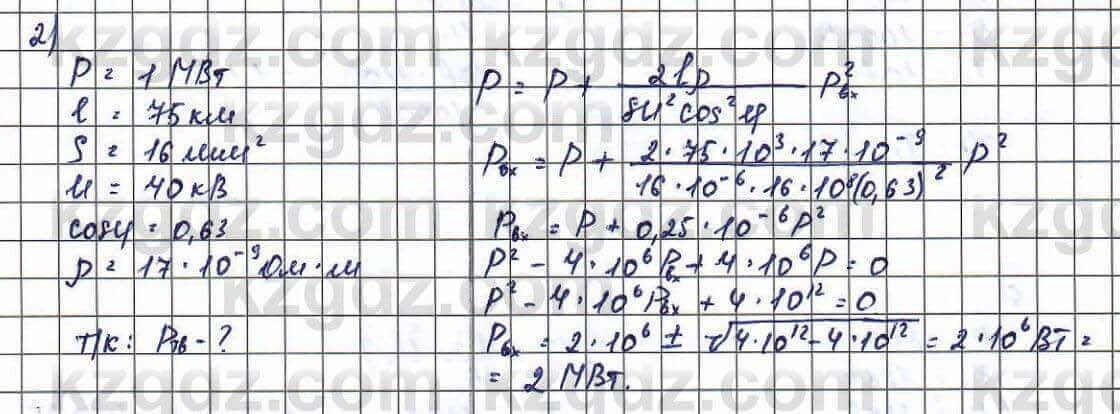 2)
P = 1 МВт
l = 75 км
S = 16 мм²
U = 40 кВ
cosφ = 0,63
ρ = 17 · 10⁻⁹ Ом · м
т/к: Pвх - ?
P = P + 2lρ / SU² cos² φ Pвх²
Pвх = P + 2 · 75 · 10³ · 17 · 10⁻⁹ / 16 · 10⁻⁶ · 16 · 10⁸ (0,63)² P²
Pвх = P + 0,25 · 10⁻⁶ P²
P² - 4 · 10⁶ Pвх + 4 · 10⁶ P = 0
P² - 4 · 10⁶ Pвх + 4 · 10¹² = 0
Pвх = 2 · 10⁶ ± √4 · 10¹² - 4 · 10¹² = 2 · 10⁶ Вт =
= 2 МВт.
kzgdz.com